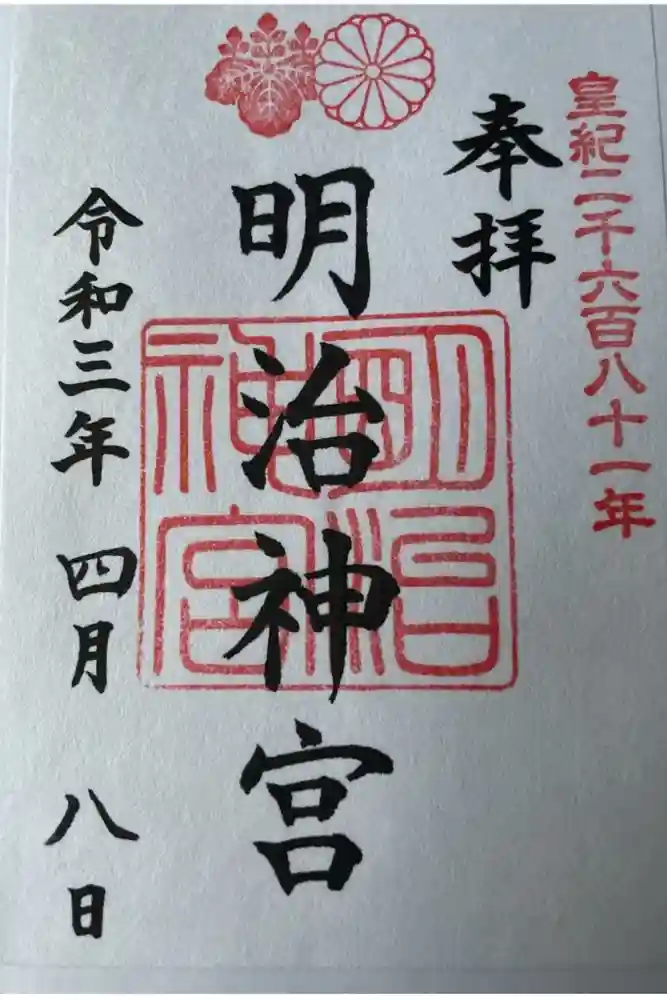 皇紀二千六百八十一年
奉拝
明治神宮
明治神宮
令和三年 四月 八日